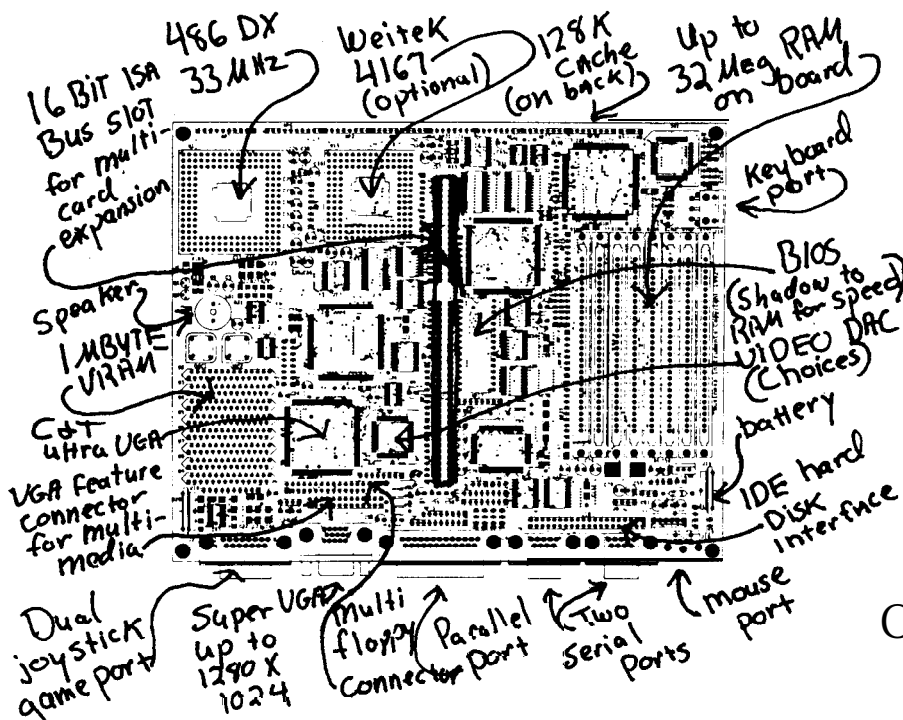 16 BIT ISA
Bus Slot
for multi-
card
expansion
486 DX
33 MHz
Weitek
4167
(optional)
128K
CACHE
(on back)
Up to
32 Meg RAM
on board
Keyboard
port
Speaker
1 MBYTE
VRAM
C&T
ultra VGA
VGA feature
connector
for multi-
media
BIOS
(Shadow to
RAM for speed)
VIDEO DAC
(Choices)
battery
IDE hard
Disk
interface
Dual
joystick
game port
Super VGA
up to
1280 X
1024
Multi
floppy
Connector
Parallel
port
Two
Serial
Ports
mouse
port
C